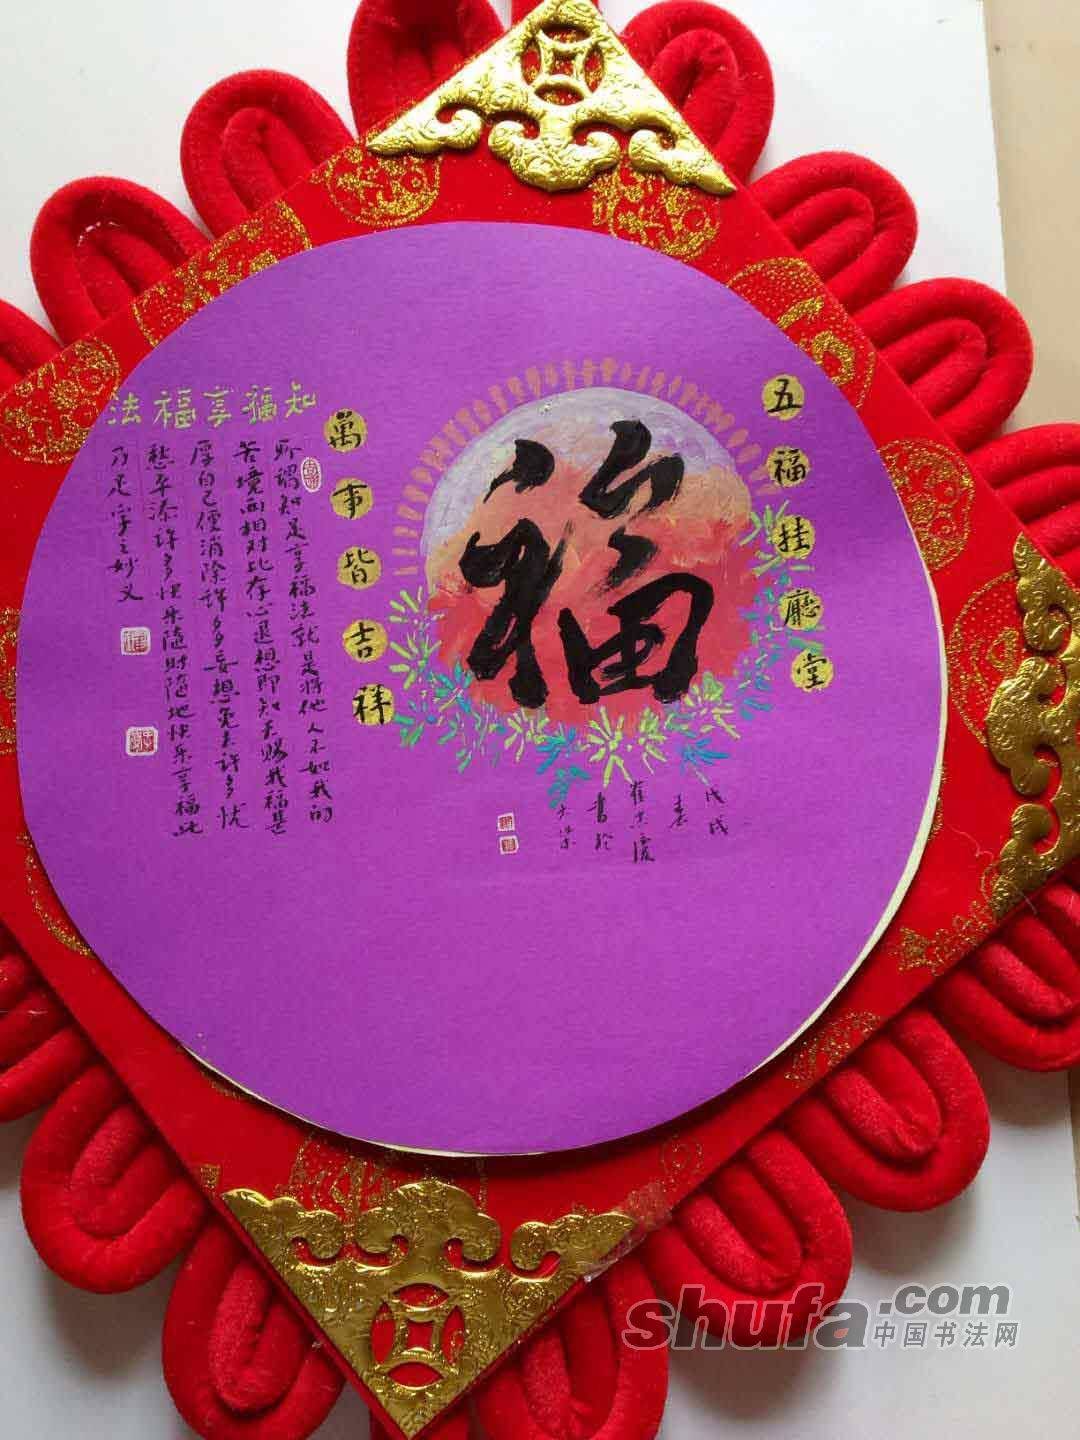 福
五福挂廳堂
萬事皆吉祥
知福享福法
所謂知足享福法就是將他人不如我的
苦境面相对比存心退想即知天赐我福甚
厚自己便消除許多妄想免去許多忧
愁平添許多快乐隨时隨地快乐享福此
乃足字之妙义
戊戌
春
書於
shufa.com
中国书法网